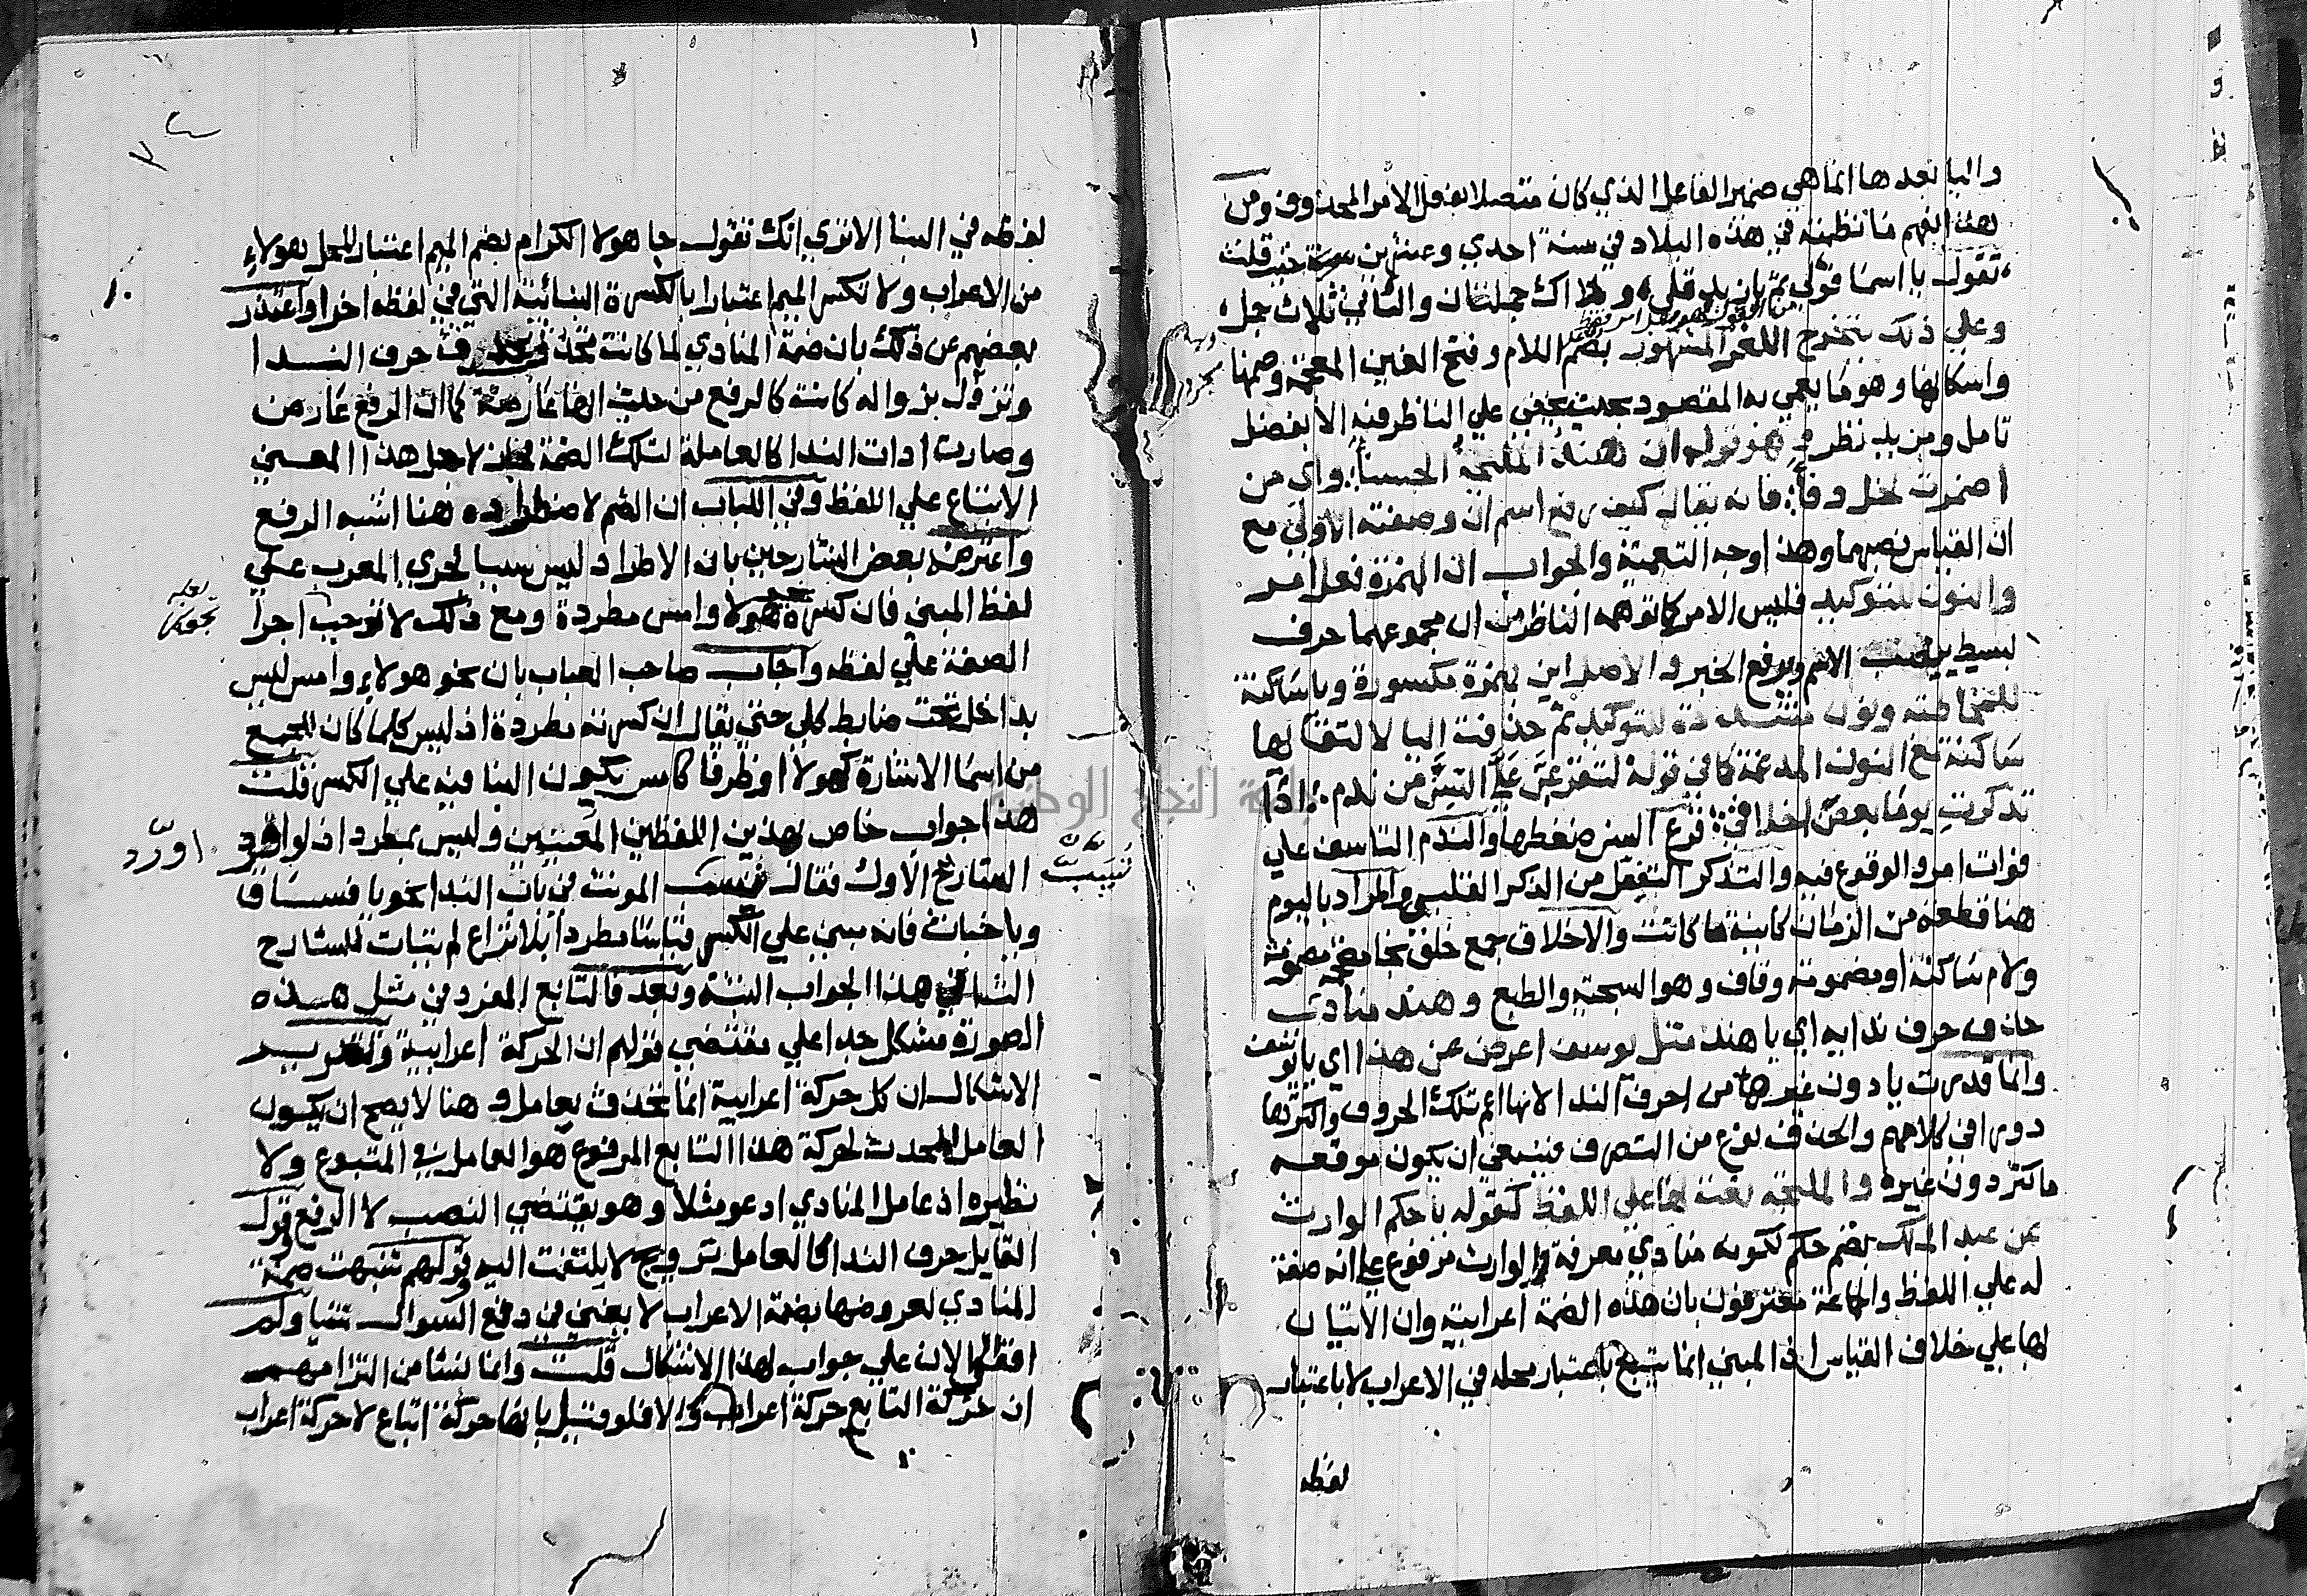 واليا بعدها انما هي ضمير الفاعل الذي كان متصلا بفعل الامر المحذوف ومن
هذا الفهم ما نظمته في هذه البلاد في سنة احدي وعشرين حيث قلت
تقول يا اسما قولي ثم بان يد قلي وذاك جملتان والثاني ثلاث جمل
وعلي ذلك يتخرج اللغز المشهور بضم اللام وفتح الغين المعجمة وضمها
واسكانها وهو ما يعمي به المقصود بحيث يخفي علي الناظر فيه الا بفضل
تامل ومزيد نظر وهو قوله ان هند المليحة الحسناء واي من
اضمرت لخل وفاء فانه يقال كيف رفع اسم ان وصفته الاولي مع
ان القياس نصبهما وهذا وجه التعمية والجواب ان الهمزة فعل امر
والنون للتوكيد فليس الامر كما توهمه الناظر من ان مجموعهما حرف
بسيط ينصب الاسم ويرفع الخبر والاصل اين بهمزة مكسورة ويا ساكنة
للمخاطبة ونون مشددة للتوكيد ثم حذفت اليا لالتقائها
ساكنة مع النون المدغمة كما في قوله لتقرعن علي السن من ندم اذا
تذكرت يوما بعض اخلاقي قرع السن ضغطها والندم التاسف علي
فوات امر والوقوع فيه والتذكر التفعل من الذكر القلبي والمراد باليوم
هنا قطعة من الزمان كاينة ما كانت والاخلاق جمع خلق بخا معجمة مضمومة
ولام ساكنة او مضمومة وقاف وهو السجية والطبع وهند منادي
حذف حرف ندايه اي يا هند مثل يوسف اعرض عن هذا اي يا يوسف
وانما قدرت يا دون غيرها من احرف الندا لانها ام تلك الحروف واكثرها
دورا في كلامهم والحذف نوع من التصرف فينبغي ان يكون موقعه
ما كثر دون غيره والمليحة نعت لها علي اللفظ كقوله يا حكم الوارث
عن عبد الملك بضم حكم لكونه منادي معرفة والوارث مرفوع علي انه صفة
له علي اللفظ والجماعة معترفون بان هذه الضمة اعرابية وان الاتيان
بها علي خلاف القياس اذ المبني انما يتبع باعتبار محله في الاعراب لا باعتبار
لفظه
لفظه في البنا الا تري انك تقول جا هولا الكرام بضم الميم اعتبار لمحل هولاء
من الاعراب ولا تكسر الميم اعتبارا بالكسرة البنائية التي في لفظه اخرا واعتذر
بعضهم عن ذلك بان ضمة المنادي لما كانت تحدث بحدوث حرف الندا
وتزول بزواله كانت كالرفع من حيث انها عارضة كما ان الرفع عارض
وصارت ادات الندا كالعاملة لتلك الضمة فجاز لاجل هذا المعني
الاتباع علي اللفظ وفي اللباب ان الضم لاضطراده هنا اشبه الرفع
واعترضه بعض الشارحين بان الاطراد ليس سببا لجري المعرب علي
لفظ المبني فان كسرة هولا وامس مطردة ومع ذلك لا توجب اجرا
الصفة علي لفظه واجاب صاحب العباب بان نحو هولاء وامس ليس
بداخل تحت ضابط كلي حتي يقال ان كسرته مطردة اذ ليس كلما كان للجمع
من اسما الاشارة كهولا او ظرفا كامس يكون البنا فيه علي الكسر قلت
هذا جواب خاص بهذين اللفظين المعينين وليس بمطرد اذ لو اورد
اورد
الشارح الاول فقال سبب المونث في باب الندا نحو يا فساق
ويا خباث فانه مبني علي الكسر قياسا مطردا بلا نزاع لم يتبات للشارح
الثاني هذا الجواب البتة وبعد فالتابع المفرد في مثل هذه
الصورة مشكل جدا علي مقتضي قولهم ان الحركة اعرابية وتقرير
الاشكال ان كل حركة اعرابية انما تحدث بعامل وهنا لا يصح ان يكون
العامل المحدث لحركة هذا التابع المرفوع هو العامل في المتبوع ولا
نظيره اذ عامل المنادي ادعو مثلا وهو يقتضي النصب لا الرفع وقول
القايل حرف الندا كالعامل ترويج لا يلتفت اليه وقولهم شبهت ضمة
المنادي لعروضها بضمة الاعراب لا يغني في دفع السوال شيا ولم
اقف الي الان علي جواب لهذا الاشكال قلت وانما نشا من التزامهم
ان حركة التابع حركة اعراب والا فلو قيل بانها حركة اتباع لا حركة اعراب